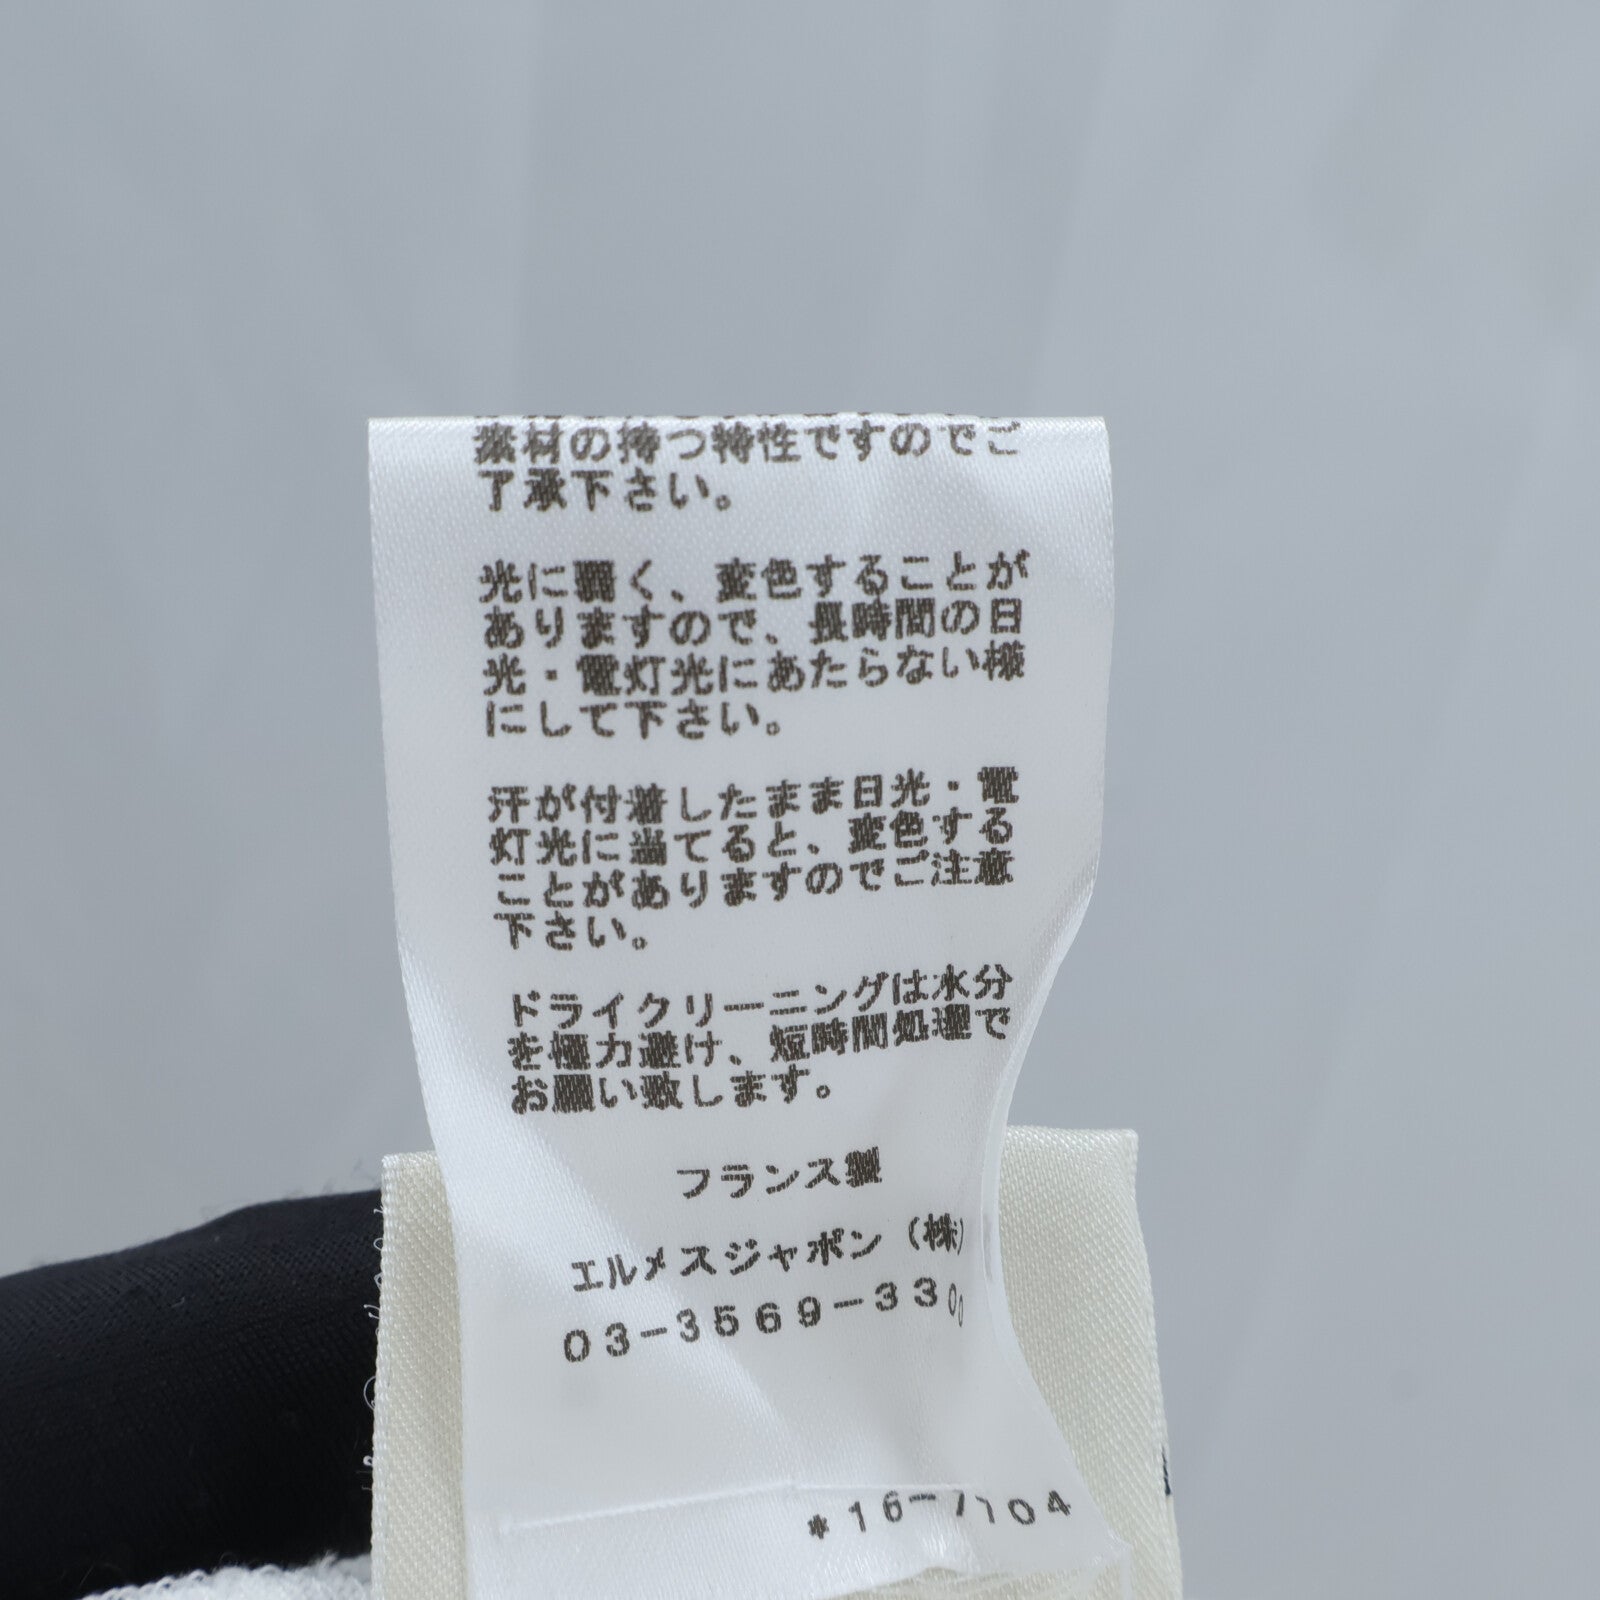 素材の持つ特性ですのでご
了承下さい。
光に弱く、変色することが
ありますので、長時間の日
光・電灯光にあたらない様
にして下さい。
汗が付着したまま日光・電
灯光に当てると、変色する
ことがありますのでご注意
下さい。
ドライクリーニングは水分
を極力避け、短時間処理で
お願い致します。
フランス製
エルメスジャポン（株）
03-3569-3300
*16-7104